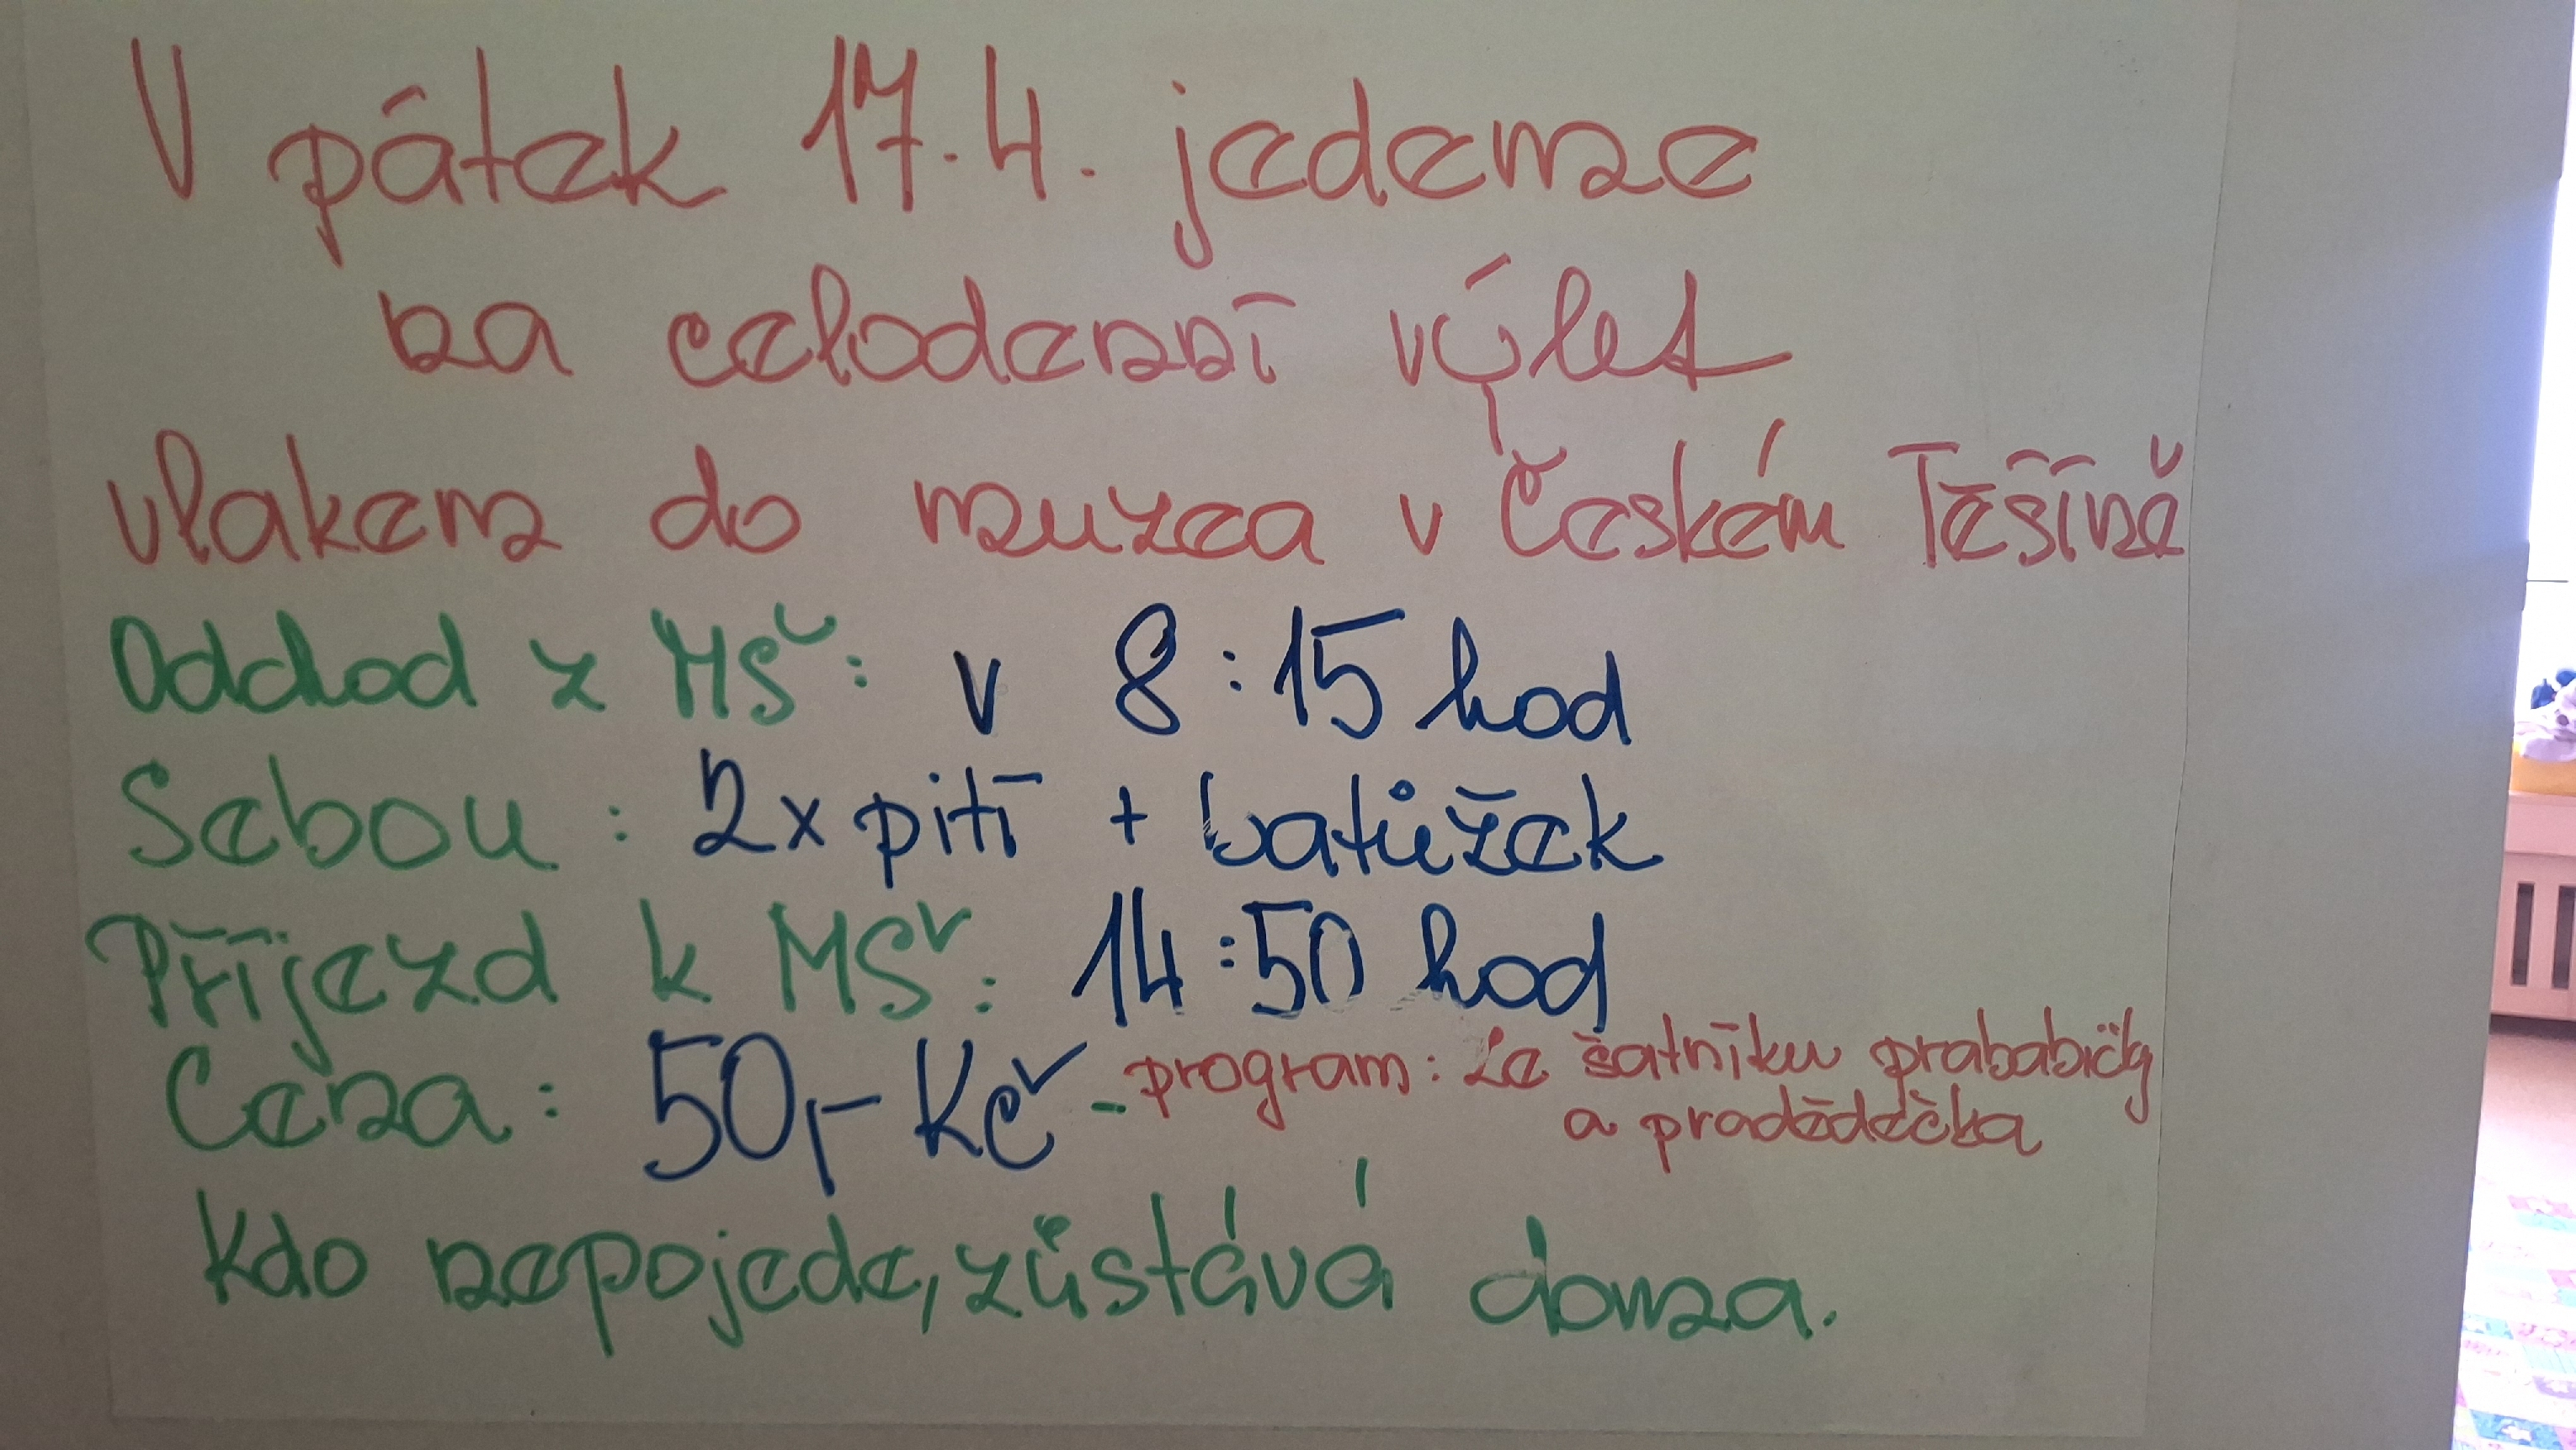 V pátek 17.4. jedeme
na celodenní výlet
vlakem do muzea v Českém Těšíně
Odchod z MŠ: v 8:15 hod
Sebou: 2x pití + batůžek
Příjezd k MŠ: 14:50 hod
Cena: 50,- Kč - program: Ze šatníku prababičky
a pradědečka
Kdo nepojede, zůstává doma.